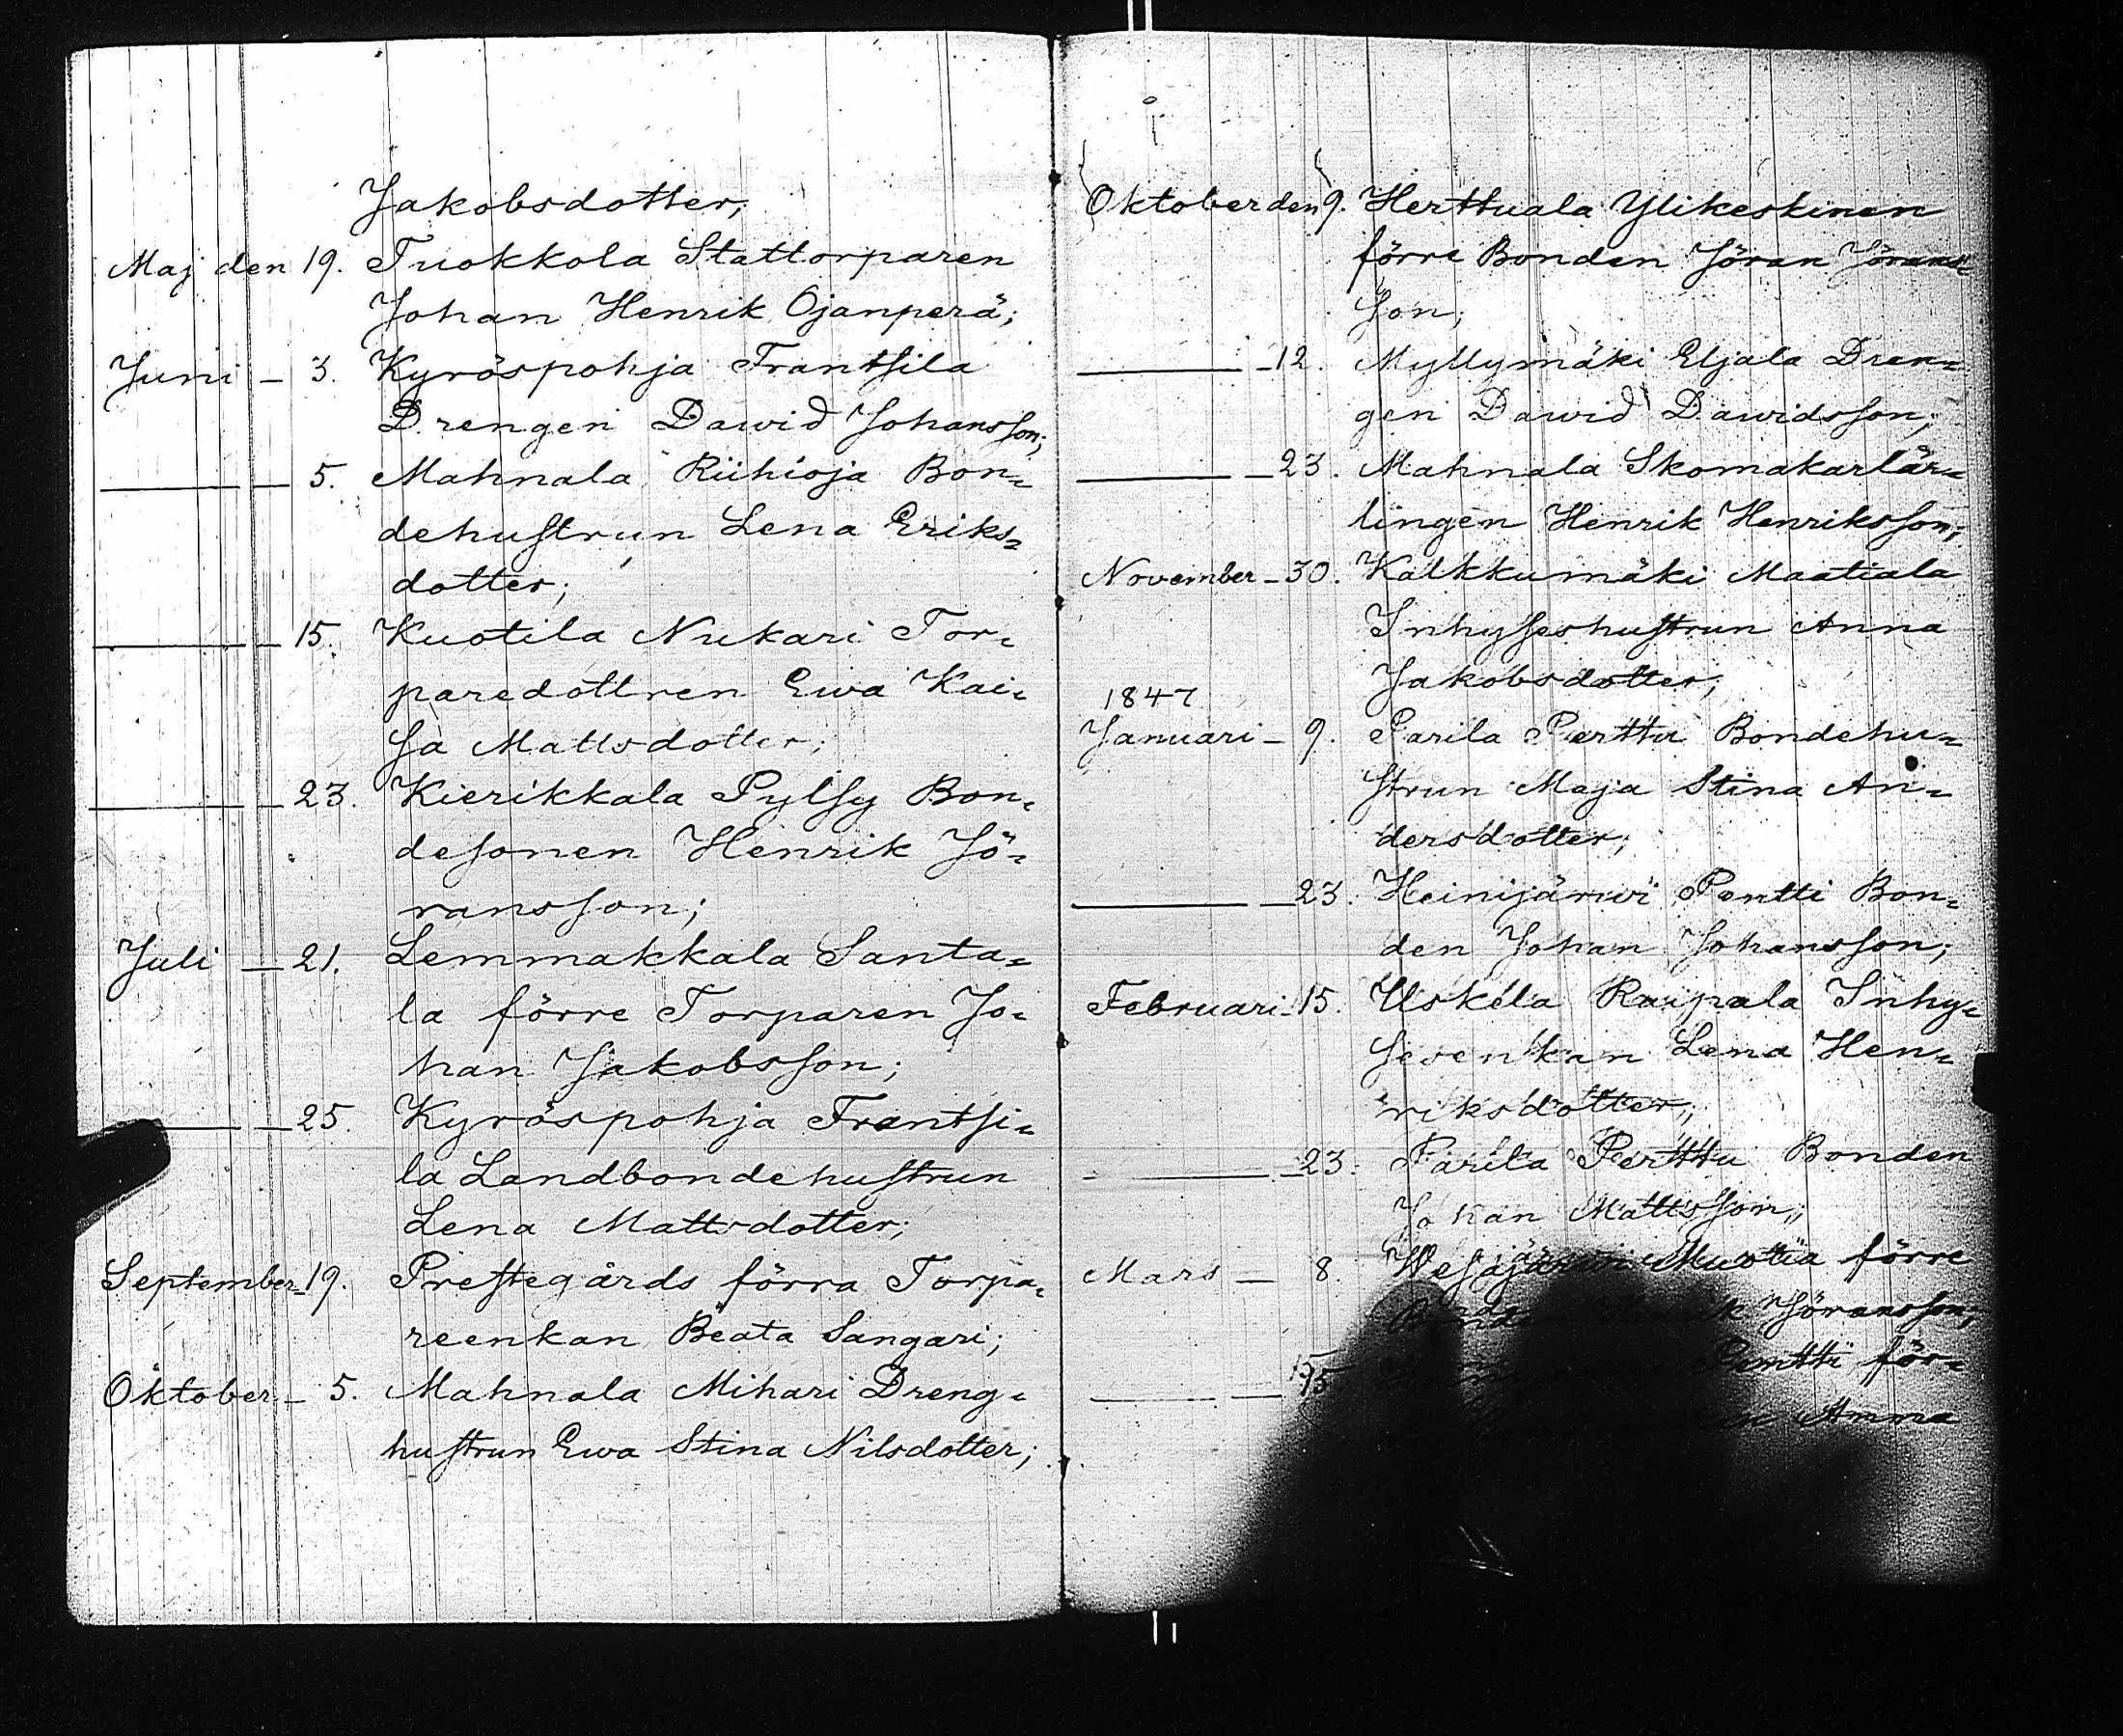 Jakobsdotter;
Maj den 19. Tuokkola Stattorparen
Johan Henrik Ojanperä;
Juni – 3. Kyröspohja Frantsila
Drengen Dawid Johansson;
— 5. Mahnala Riihioja Bon=
dehustrun Lena Eriks=
dotter;
— 15. Kuotila Nukari Tor=
paredottren Ewa Kai=
sa Mattsdotter;
— 23. Kierikkala Pylsy Bon=
desonen Henrik Jö=
ransson;
Juli — 21. Lemmakkala Santa=
la förre Torparen Jo=
han Jakobsson;
— 25. Kyröspohja Frantsi=
la Landbondehustrun
Lena Mattsdotter;
September – 19. Prestegårds förra Torpa=
reenkan Beata Sangari;
Oktober – 5. Mahnala Mihari Dreng=
hustrun Ewa Stina Nilsdotter;
Oktober den 9. Herttuala Ylikeskinen
förre Bonden Jöran Jörans=
son;
— 12. Myllymäki Eljala Dren=
gen Dawid Dawidsson;
— 23. Mahnala Skomakarlär=
lingen Henrik Henriksson;
November – 30. Kalkkumäki Maatiala
Inhyseshustrun Anna
Jakobsdotter;
1847
Januari – 9. Parila Perttu Bondehu=
strun Maja Stina An=
dersdotter;
— 23. Heinijärwi Pentti Bon=
den Johan Johansson;
Februari – 15. Uskela Raipala Inhy=
sesenkan Lena Hen=
riksdotter;
— 23. Parila Perttu Bonden
Johan Mattsson;
Mars — 8. Wesajärwi Muotia förre
Jöransson;
— 15 Pentti för=
Anna